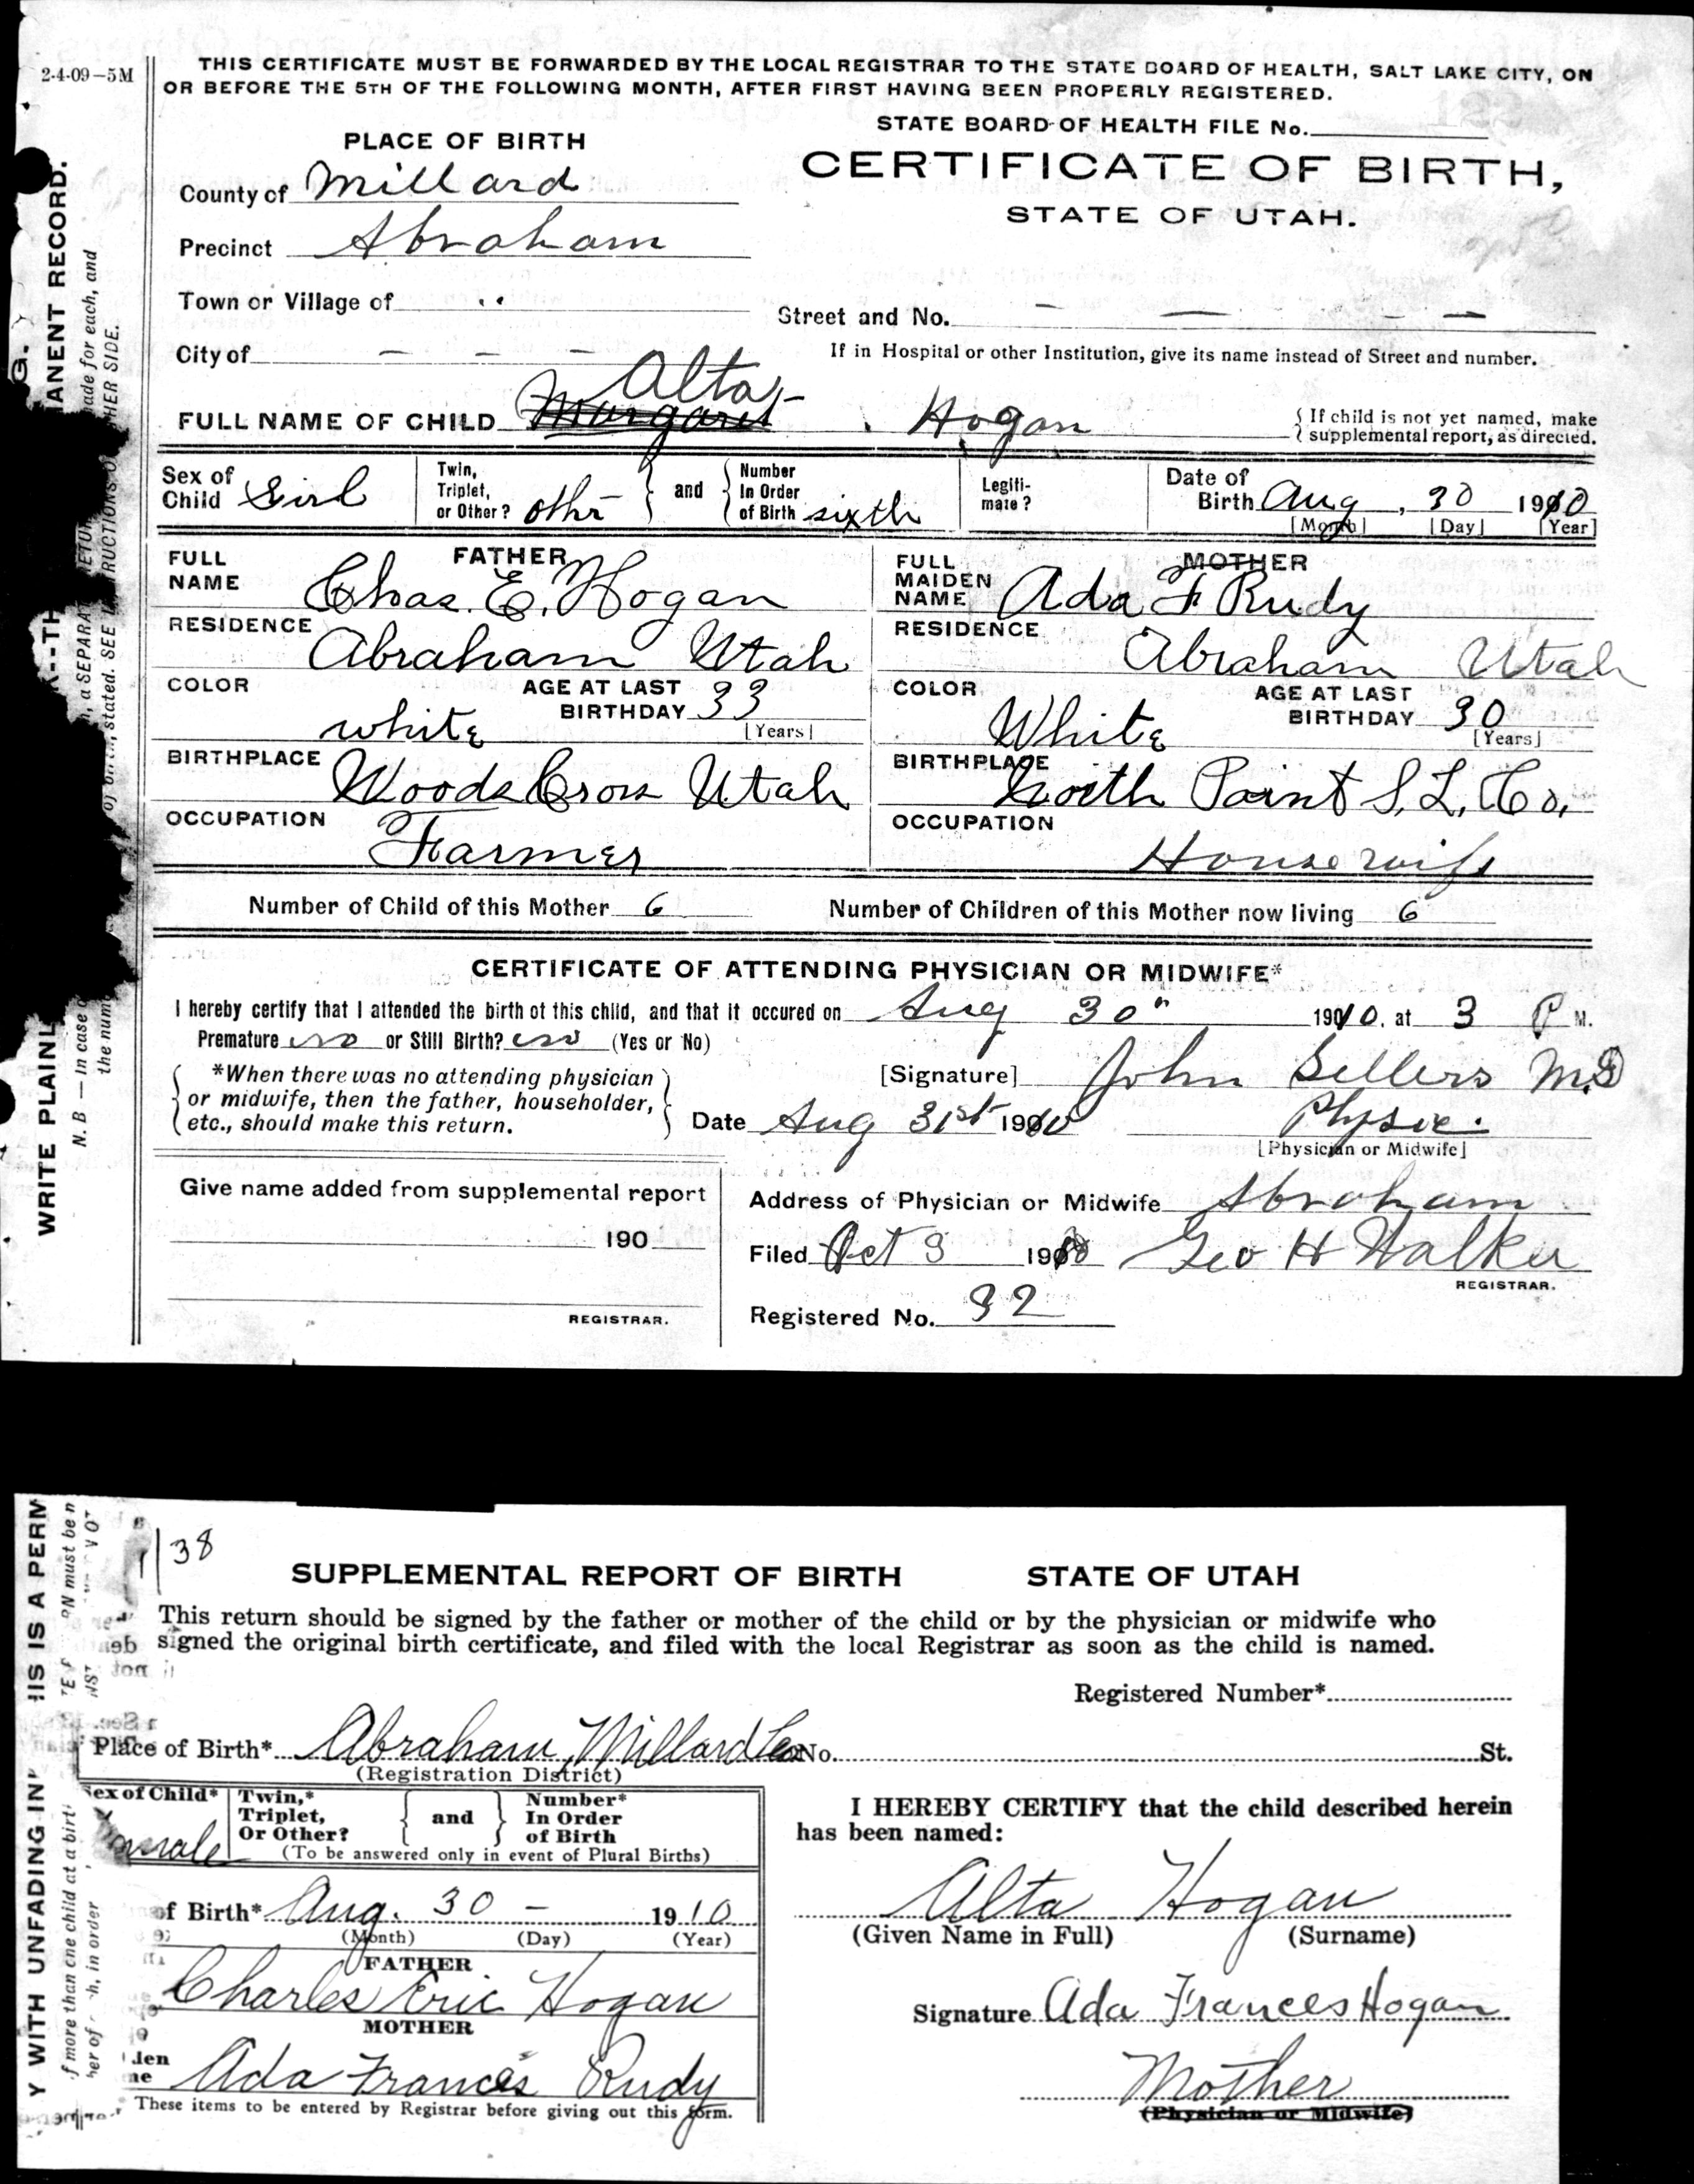 2-4-09-5M
THIS CERTIFICATE MUST BE FORWARDED BY THE LOCAL REGISTRAR TO THE STATE BOARD OF HEALTH, SALT LAKE CITY, ON
OR BEFORE THE 5TH OF THE FOLLOWING MONTH, AFTER FIRST HAVING BEEN PROPERLY REGISTERED.
STATE BOARD OF HEALTH FILE No.
PLACE OF BIRTH
CERTIFICATE OF BIRTH,
STATE OF UTAH.
County of Millard
Precinct Abraham
Town or Village of " 
Street and No. — — —
City of — — —
If in Hospital or other Institution, give its name instead of Street and number.
Alta
FULL NAME OF CHILD Margaret Hogan
{ If child is not yet named, make
supplemental report, as directed.
Sex of Child Girl
Twin, Triplet, or Other? othr
and
Number In Order of Birth sixth
Legiti-mate?
Date of Birth Aug, 30 1910
[Month] [Day] [Year]
FATHER
FULL NAME Chas. E. Hogan
RESIDENCE Abraham Utah
COLOR white
AGE AT LAST BIRTHDAY 33 [Years]
BIRTHPLACE Woods Cross Utah
OCCUPATION Farmer
MOTHER
FULL MAIDEN NAME Ada F Rudy
RESIDENCE Abraham Utah
COLOR White
AGE AT LAST BIRTHDAY 30 [Years]
BIRTHPLACE North Point S. L. Co.
OCCUPATION House wife
Number of Child of this Mother 6
Number of Children of this Mother now living 6
CERTIFICATE OF ATTENDING PHYSICIAN OR MIDWIFE*
I hereby certify that I attended the birth of this child, and that it occured on Aug 30" 1910. at 3 P M.
Premature no or Still Birth? no (Yes or No)
*When there was no attending physician
or midwife, then the father, householder,
etc., should make this return.
[Signature] John Sellers M.D
Date Aug 31st 1910
Physic.
[Physician or Midwife]
Give name added from supplemental report
190
REGISTRAR.
Address of Physician or Midwife Abraham
Filed Oct 3 1910 Geo H Walker
REGISTRAR.
Registered No. 32
WRITE PLAINL
ANENT RECORD.
N. B — In case o
the num
a SEPARAT
stated. SEE
ade for each, and
HER SIDE.
38
SUPPLEMENTAL REPORT OF BIRTH STATE OF UTAH
This return should be signed by the father or mother of the child or by the physician or midwife who
signed the original birth certificate, and filed with the local Registrar as soon as the child is named.
Registered Number*
Place of Birth* Abraham, Millard Co No. St.
(Registration District)
Sex of Child*
Female
Twin,* Triplet, Or Other?
and
Number* In Order of Birth
(To be answered only in event of Plural Births)
of Birth* Aug. 30 - 1910
(Month) (Day) (Year)
FATHER
Charles Eric Hogan
MOTHER
Ada Frances Rudy
These items to be entered by Registrar before giving out this form.
I HEREBY CERTIFY that the child described herein
has been named:
Alta Hogan
(Given Name in Full) (Surname)
Signature Ada Frances Hogan
Mother
(Physician or Midwife)
Y WITH UNFADING IN
HIS IS A PERM
f more than one child at a birt
her of
h, in order
N must be n